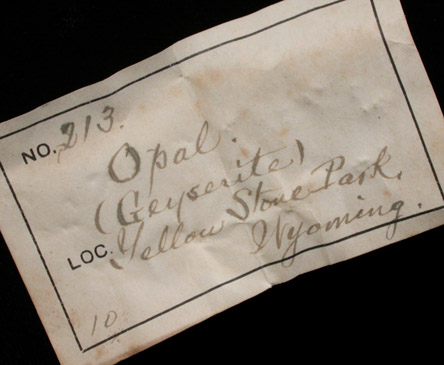 NO. 213.
Opal.
(Geyserite)
LOC. Yellow Stone Park,
Wyoming.
10